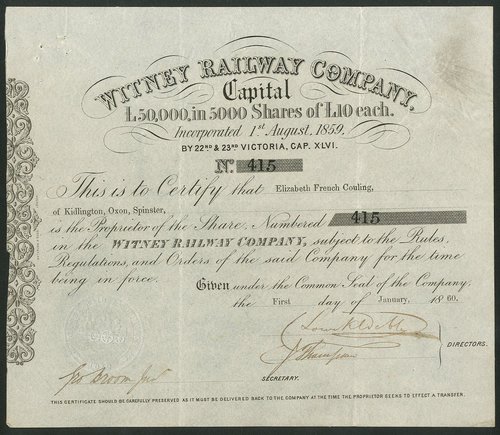 WITNEY RAILWAY COMPANY,
Capital
£50,000, in 5000 Shares of £10 each.
Incorporated 1st August, 1859.
BY 22ND & 23RD VICTORIA, CAP. XLVI.
No. 415
This is to Certify that Elizabeth French Couling,
of Kidlington, Oxon, Spinster,
is the Proprietor of the Share, Numbered 415
in the WITNEY RAILWAY COMPANY, subject to the Rules,
Regulations, and Orders of the said Company for the time
being in force.
Given under the Common Seal of the Company,
the First day of January, 1860.
J Thompson
DIRECTORS.
SECRETARY.
THIS CERTIFICATE SHOULD BE CAREFULLY PRESERVED AS IT MUST BE DELIVERED BACK TO THE COMPANY AT THE TIME THE PROPRIETOR SEEKS TO EFFECT A TRANSFER.